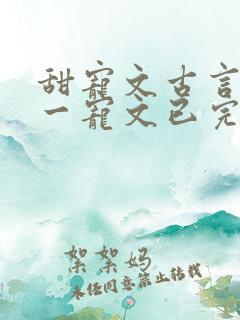 甜寵文古言
一寵文已完
絮絮妈
未经同意禁止转载